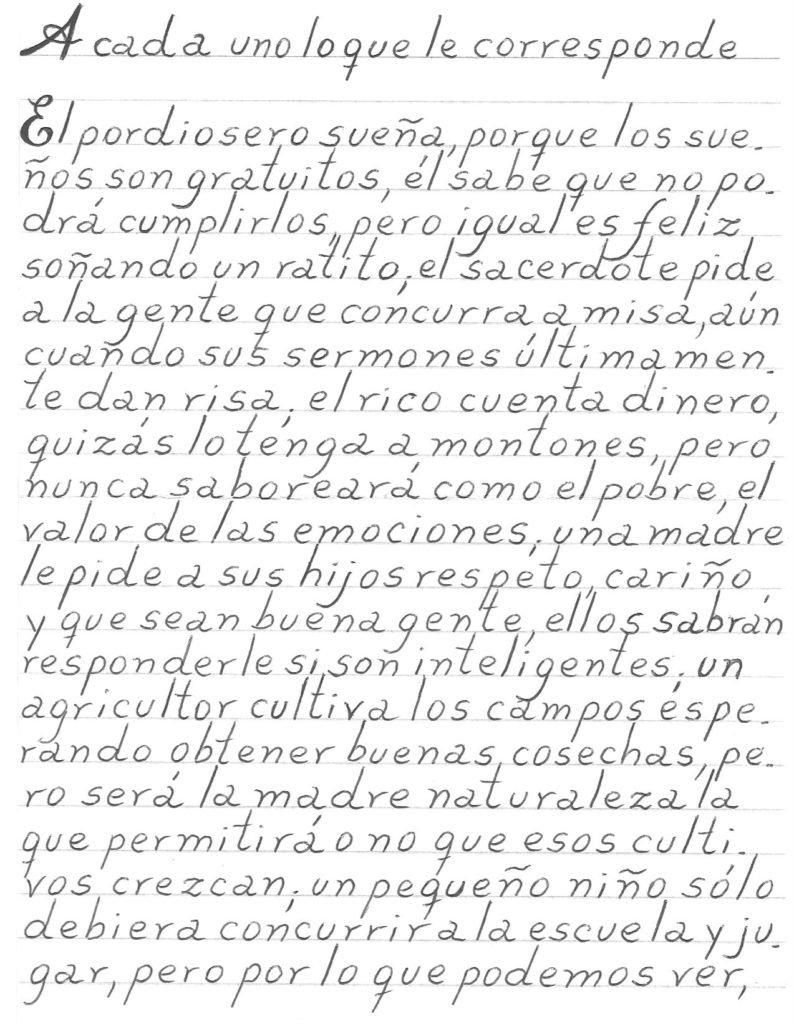 A cada uno lo que le corresponde
El pordiosero sueña, porque los sue-
ños son gratuitos, él sabe que no po-
drá cumplirlos, pero igual es feliz
soñando un ratito; el sacerdote pide
a la gente que concurra a misa, aún
cuando sus sermones últimamen-
te dan risa; el rico cuenta dinero,
quizás lo tenga a montones, pero
nunca saboreará como el pobre, el
valor de las emociones; una madre
le pide a sus hijos respeto, cariño
y que sean buena gente, ellos sabrán
responderle si son inteligentes; un
agricultor cultiva los campos espe-
rando obtener buenas cosechas, pe-
ro será la madre naturaleza la
que permitirá o no que esos culti-
vos crezcan; un pequeño niño sólo
debiera concurrir a la escuela y ju-
gar, pero por lo que podemos ver,